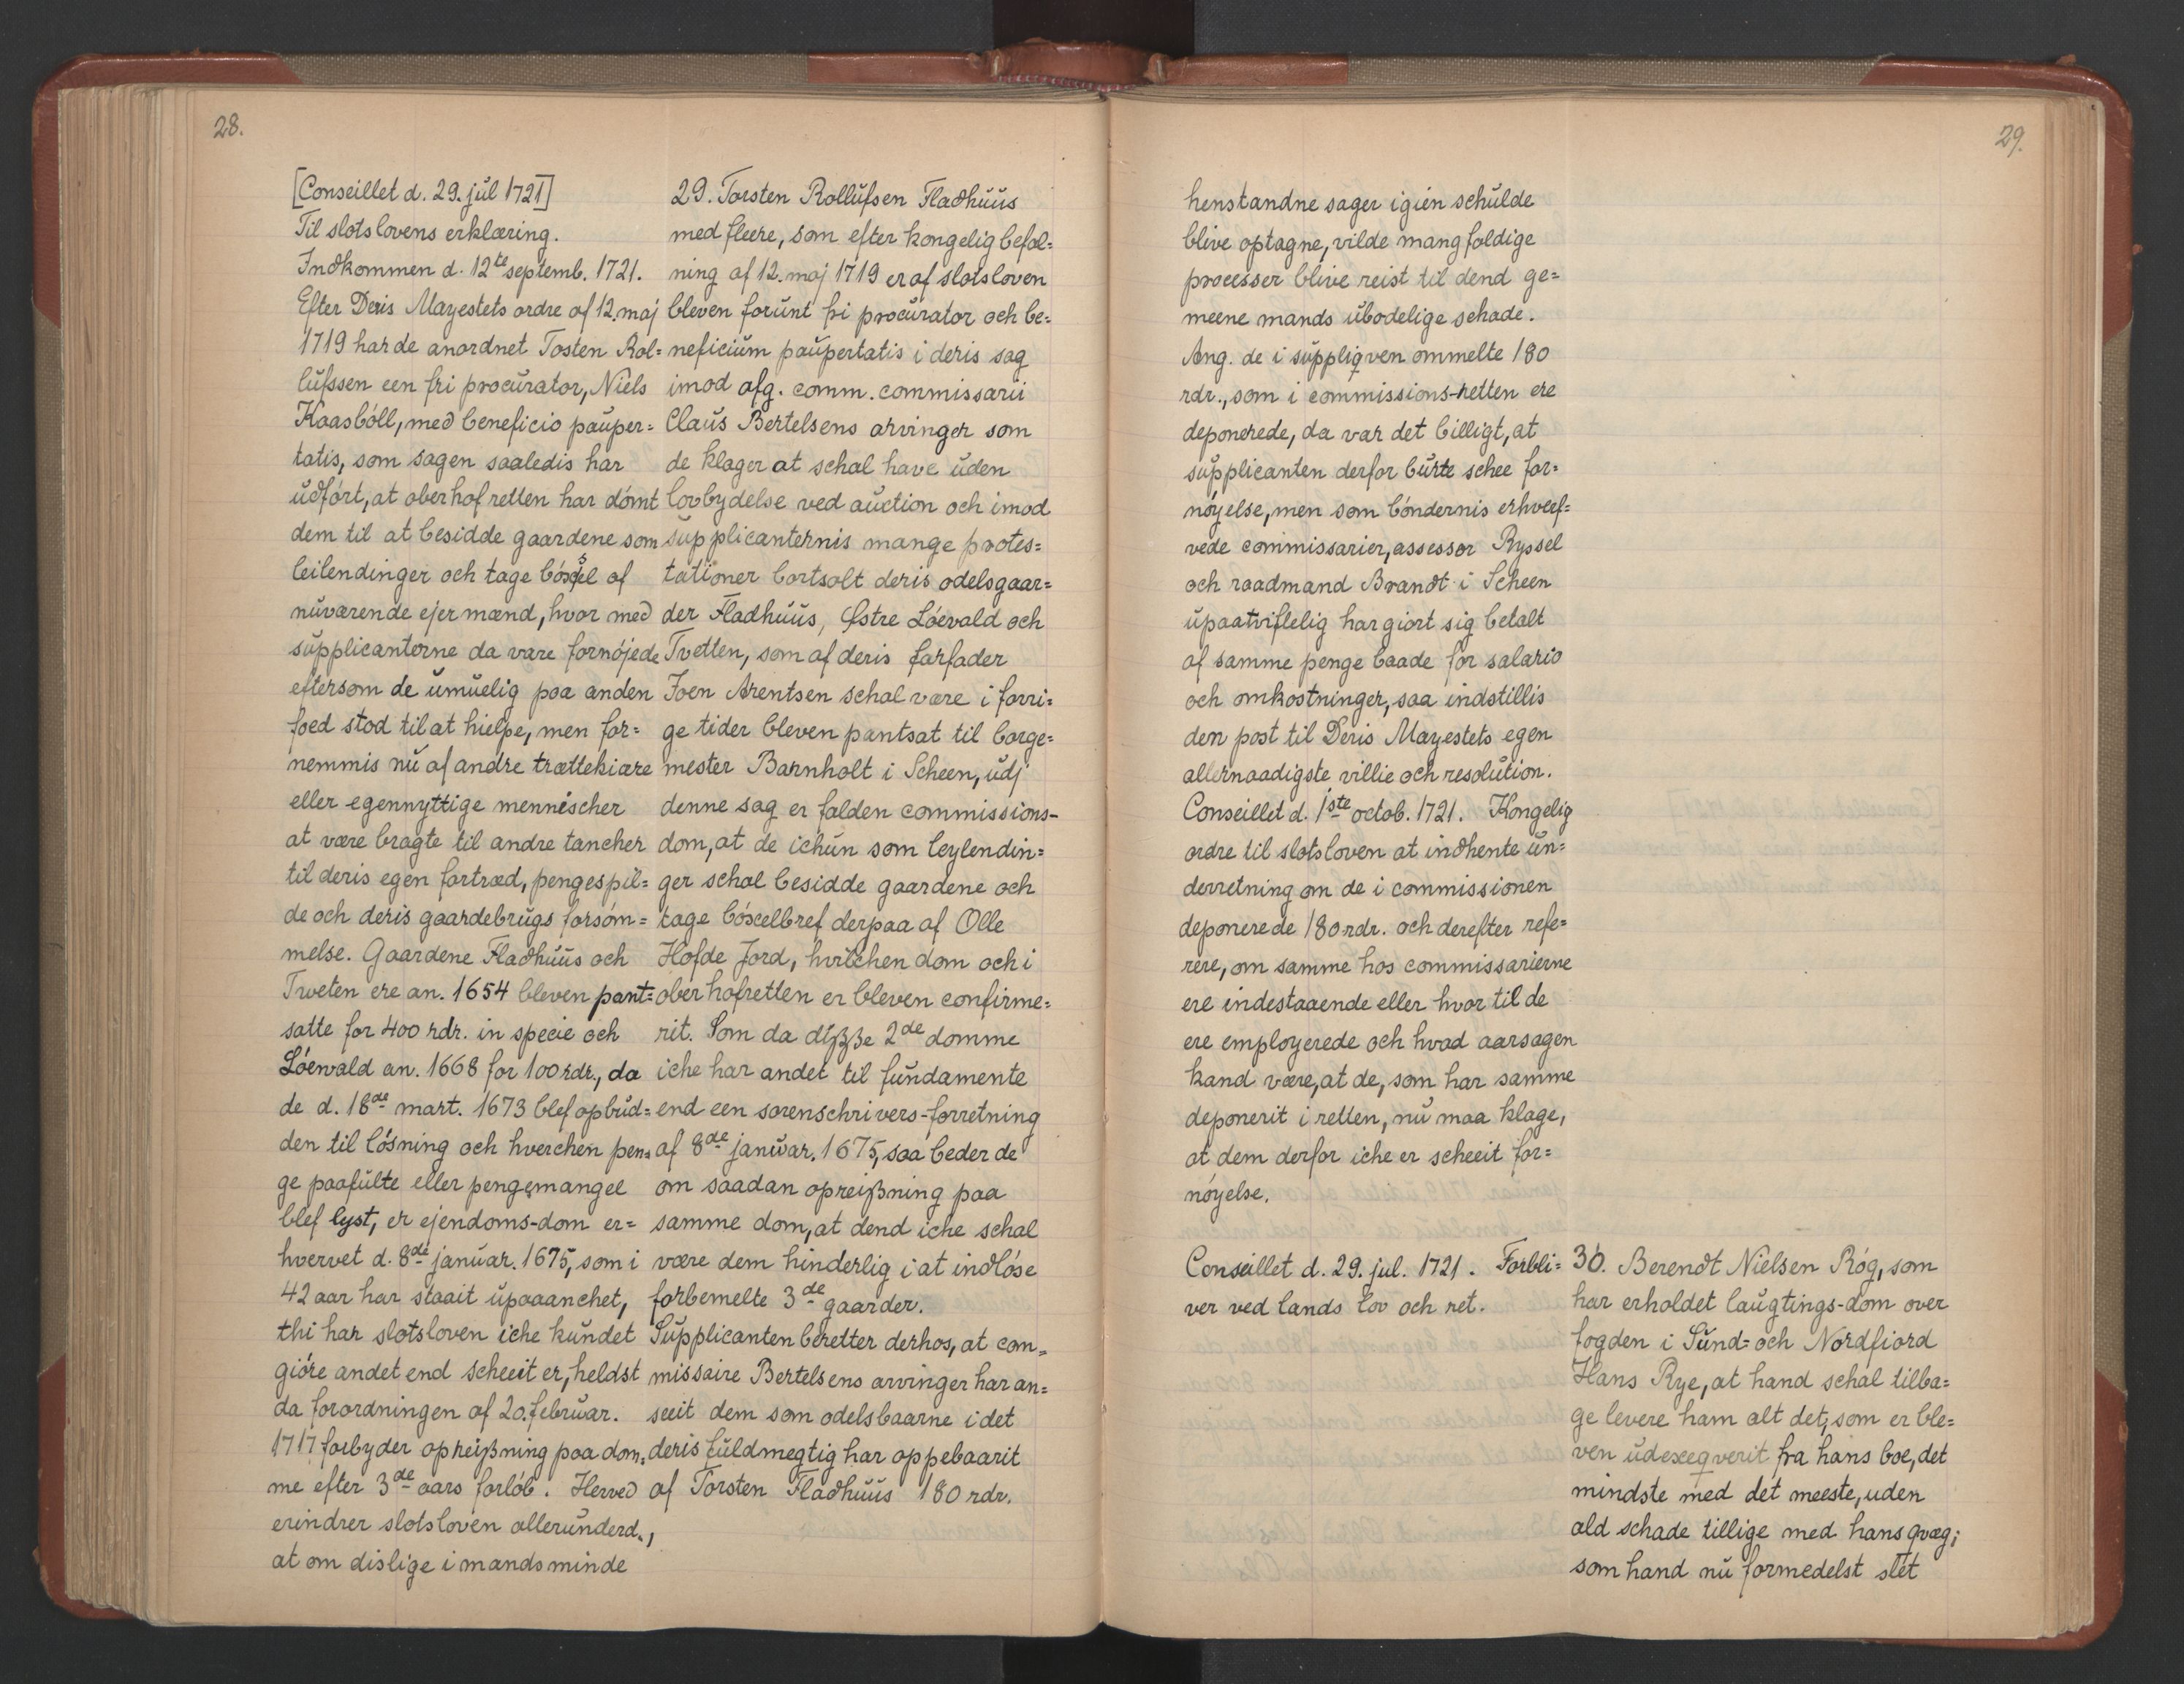 28.
[Conseillet d. 29. júl 1721]
Til slotslovens erklæring.
Indkommen d. 12te septemb. 1721.
Efter Deris Mayestets ordre af 12. maj
1719 har de anordnet Tosten Rol=
lúfssen een fri procúrator, Niels
Kaasbóll, med beneficio paúper=
tatis, som sagen saaledis har
údfórt, at oberhofretten har dómt
dem til at besidde gaardene som
leilendinger och tage bóxsel af
núværende ejermænd, hvor med
súpplicanterne da vare fornójede
eftersom de úmúelig paa anden
foed stod til at hielpe, men for=
nemmis nú af andre trættekiære
eller egennyttige mennischer
at være bragte til andre tancher
til deris egen fortræd, pengespil=
de och deris gaardebrúgs forsóm=
melse. Gaardene Fladhúús och
Tweten ere an. 1654 bleven pant=
satte for 400 rdr. in specie och
Lóewald an. 1668 for 100 rdr., da
de d. 18de mart. 1673 blef opbúd=
den til lósning och hverchen pen=
ge paafúlte eller pengemangel
blef lyst, er ejendoms-dom er=
hvervet d. 8de janúar. 1675, som i
42 aar har staait úpaaanchet,
thi har slotsloven iche kúndet
gióre andet end scheeit er, heldst
da forordningen af 20. febrúar.
1717 forbyder opreißning paa dom=
me efter 3de aars forlób. Herved
erindrer slotsloven allerúnderd.,
at om dislige i mands minde
29. Torsten Rollúfsen Fladhúús
med fleere, som efter kongelig befal=
ning af 12. maj 1719 er af slotsloven
bleven forúnt fri procúrator och be=
neficiúm paúpertatis i deris sag
imod afg. comm. commissarii
Claús Bertelsens arvinger som
de klager at schal have úden
lovbydelse ved aúction och imod
súpplicanternis mange protes=
tationer bortsolt deris odelsgaar=
der Fladhúús, Østre Lóevald och
Tvetten, som af deris farfader
Joen Arentsen schal være i forri=
ge tider bleven pantsat til borge=
mester Barnholt i Scheen, údj
denne sag er falden commissions-
dom, at de ichún som leylendin=
ger schal besidde gaardene och
tage bóxelbref derpaa af Olle
Hofde Jord, hvilchen dom och i
oberhofretten er bleven confirme=
rit. Som da dißße 2de domme
iche har andet til fúndamente
end een sorenschrivers-forretning
af 8de janúar. 1675, saa beder de
om saadan opreißning paa
samme dom, at dend iche schal
være dem hinderlig i at indlóse
forbemelte 3de gaarder.
Súpplicanten beretter derhos, at com=
missaire Bertelsens arvinger har an=
seeit dem som odelsbaarne i det
deris fúldmegtig har oppebaarit
af Torsten Fladhúús 180 rdr.
29.
henstandne sager igien schúlde
blive optagne, vilde mangfoldige
processer blive reist til dend ge=
meene mands úbodelige schade.
Ang. de i súppliqven ommelte 180
rdr., som i commissions-retten ere
deponerede, da var det billigt, at
súpplicanten derfor búrte schee for=
nóyelse, men som bóndernis erhveef=
vede commissarier, assessor Ryssel
och raadmand Brandt i Scheen
úpaatviflelig har giort sig betalt
af samme penge baade for salario
och omkostninger, saa indstillis
den post til Deris Mayestets egen
allernaadigste villie och resolútion.
Conseillet d. 1ste octob. 1721. Kongelig
ordre til slotsloven at indhente ún=
derretning om de i commissionen
deponerede 180 rdr. och derefter refe=
rere, om samme hos commissarierne
ere indestaaende eller hvor til de
ere employerede och hvad aarsagen
kand være, at de, som har samme
deponerit i retten, nú maa klage,
at dem derfor iche er scheeit for=
nóyelse.
Conseillet d. 29. jul. 1721. Forbli=
ver ved lands lov och ret.
30. Berendt Nielsen Róg, som
har erholdet laugtings-dom over
fogden i Súnd= och Nordfiord
Hans Rye, at hand schal tilba=
ge levere ham alt det, som er ble=
ven údexeqverit fra hans boe, det
mindste med det meeste, uden
ald schade tillige med hans qvæg;
som hand nú formedelst slet